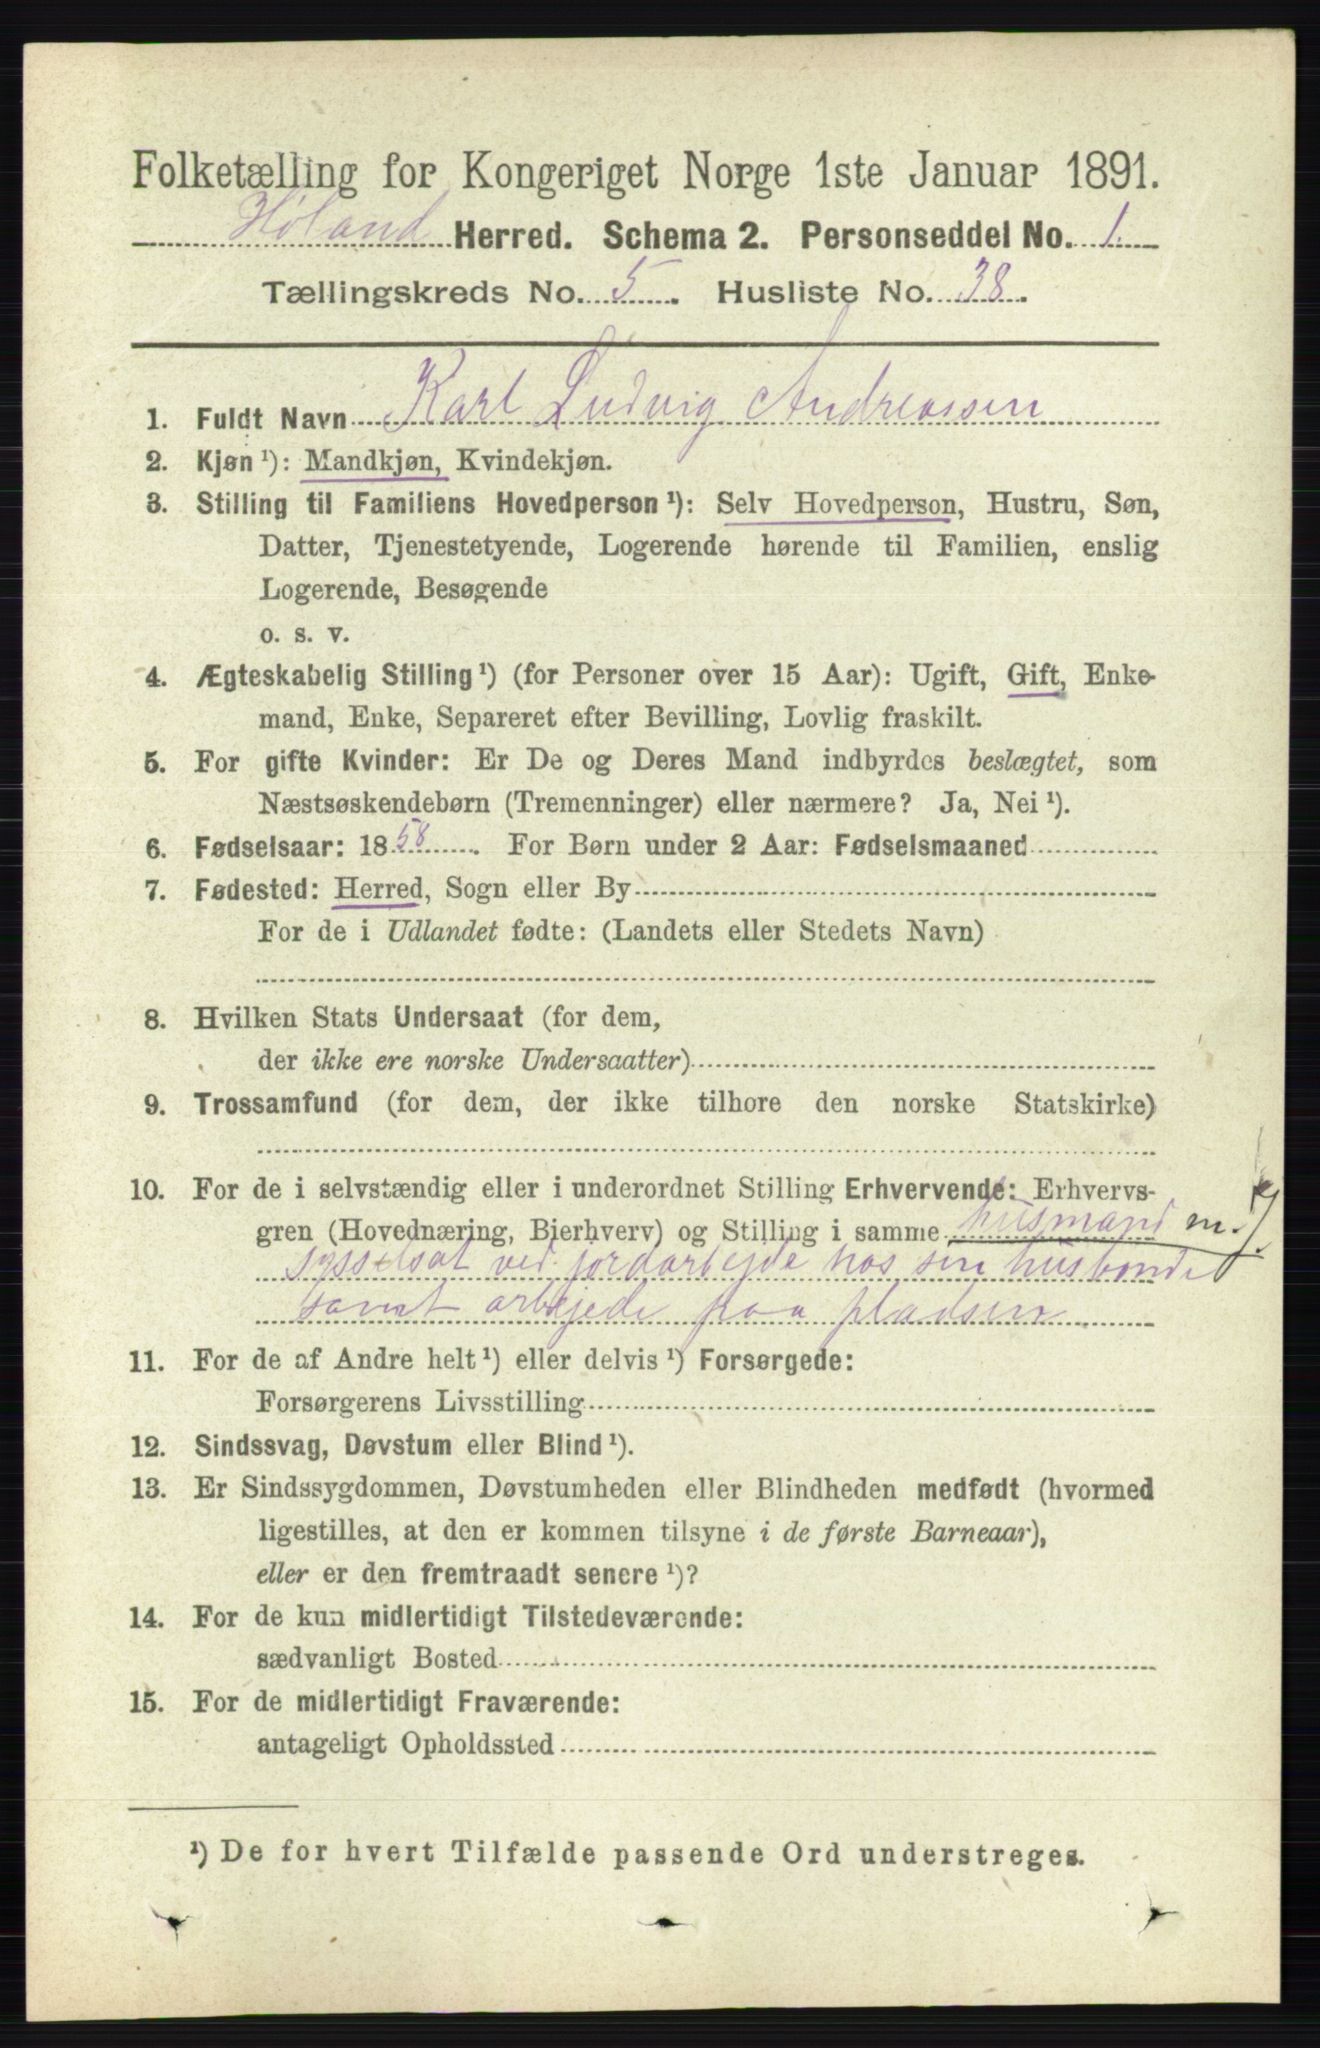 Folketælling for Kongeriget Norge 1ste Januar 1891.
Høland Herred. Schema 2. Personseddel No. 1.
Tællingskreds No. 5. Husliste No. 38.
1. Fuldt Navn Karl Ludvig Andreassen
2. Kjøn ¹): Mandkjøn, Kvindekjøn.
3. Stilling til Familiens Hovedperson ¹): Selv Hovedperson, Hustru, Søn,
Datter, Tjenestetyende, Logerende hørende til Familien, enslig
Logerende, Besøgende
o. s. v.
4. Ægteskabelig Stilling ¹) (for Personer over 15 Aar): Ugift, Gift, Enke-
mand, Enke, Separeret efter Bevilling, Lovlig fraskilt.
5. For gifte Kvinder: Er De og Deres Mand indbyrdes beslægtet, som
Næstsøskendebørn (Tremenninger) eller nærmere? Ja, Nei ¹).
6. Fødselsaar: 1858. For Børn under 2 Aar: Fødselsmaaned
7. Fødested: Herred, Sogn eller By
For de i Udlandet fødte: (Landets eller Stedets Navn)
8. Hvilken Stats Undersaat (for dem,
der ikke ere norske Undersaatter)
9. Trossamfund (for dem, der ikke tilhøre den norske Statskirke)
10. For de i selvstændig eller i underordnet Stilling Erhvervende: Erhvervs-
gren (Hovednæring, Bierhverv) og Stilling i samme husmand m. J.
sysselsat ved jordarbejde hos sin husbonde
samt arbejede paa pladsen
11. For de af Andre helt ¹) eller delvis ¹) Forsørgede:
Forsørgerens Livsstilling
12. Sindssvag, Døvstum eller Blind ¹).
13. Er Sindssygdommen, Døvstumheden eller Blindheden medfødt (hvormed
ligestilles, at den er kommen tilsyne i de første Barneaar),
eller er den fremtraadt senere ¹)?
14. For de kun midlertidigt Tilstedeværende:
sædvanligt Bosted
15. For de midlertidigt Fraværende:
antageligt Opholdssted
¹) De for hvert Tilfælde passende Ord understreges.